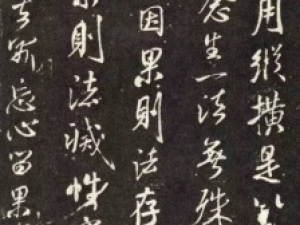 用縱橫是
念生一法無殊
因果則法存
則法滅惟
忘心留果